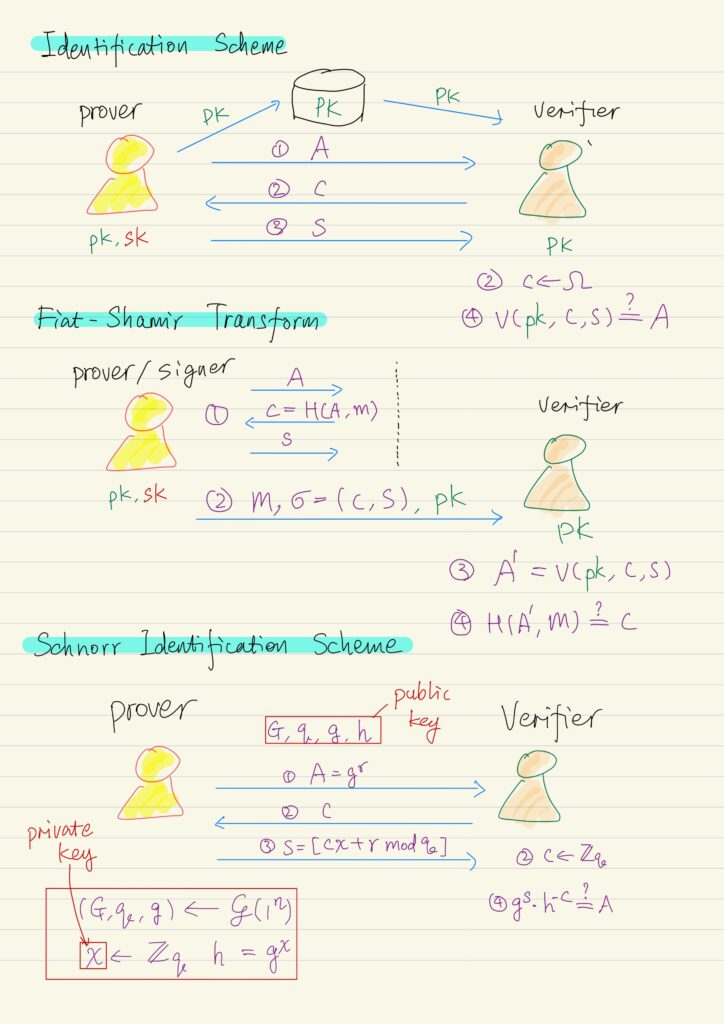 Identification Scheme
prover
PK
PK
PK
Verifier
① A
② C
③ S
pk, sk
PK
② C ← Ω
④ V(pk, C, S) ≟ A
Fiat-Shamir Transform
prover/signer
A
① C = H(A, m)
S
Verifier
pk, sk
② M, σ = (C, S), pk
PK
③ A' = V(pk, C, S)
④ H(A', M) ≟ C
Schnorr Identification Scheme
prover
public
key
G, q, g, h
Verifier
① A = gʳ
② C
③ S = [cx + r mod q]
private
key
② C ← ℤq
④ gˢ · h⁻ᶜ ≟ A
(G, q, g) ← 𝒢(1ⁿ)
x ← ℤq h = gˣ